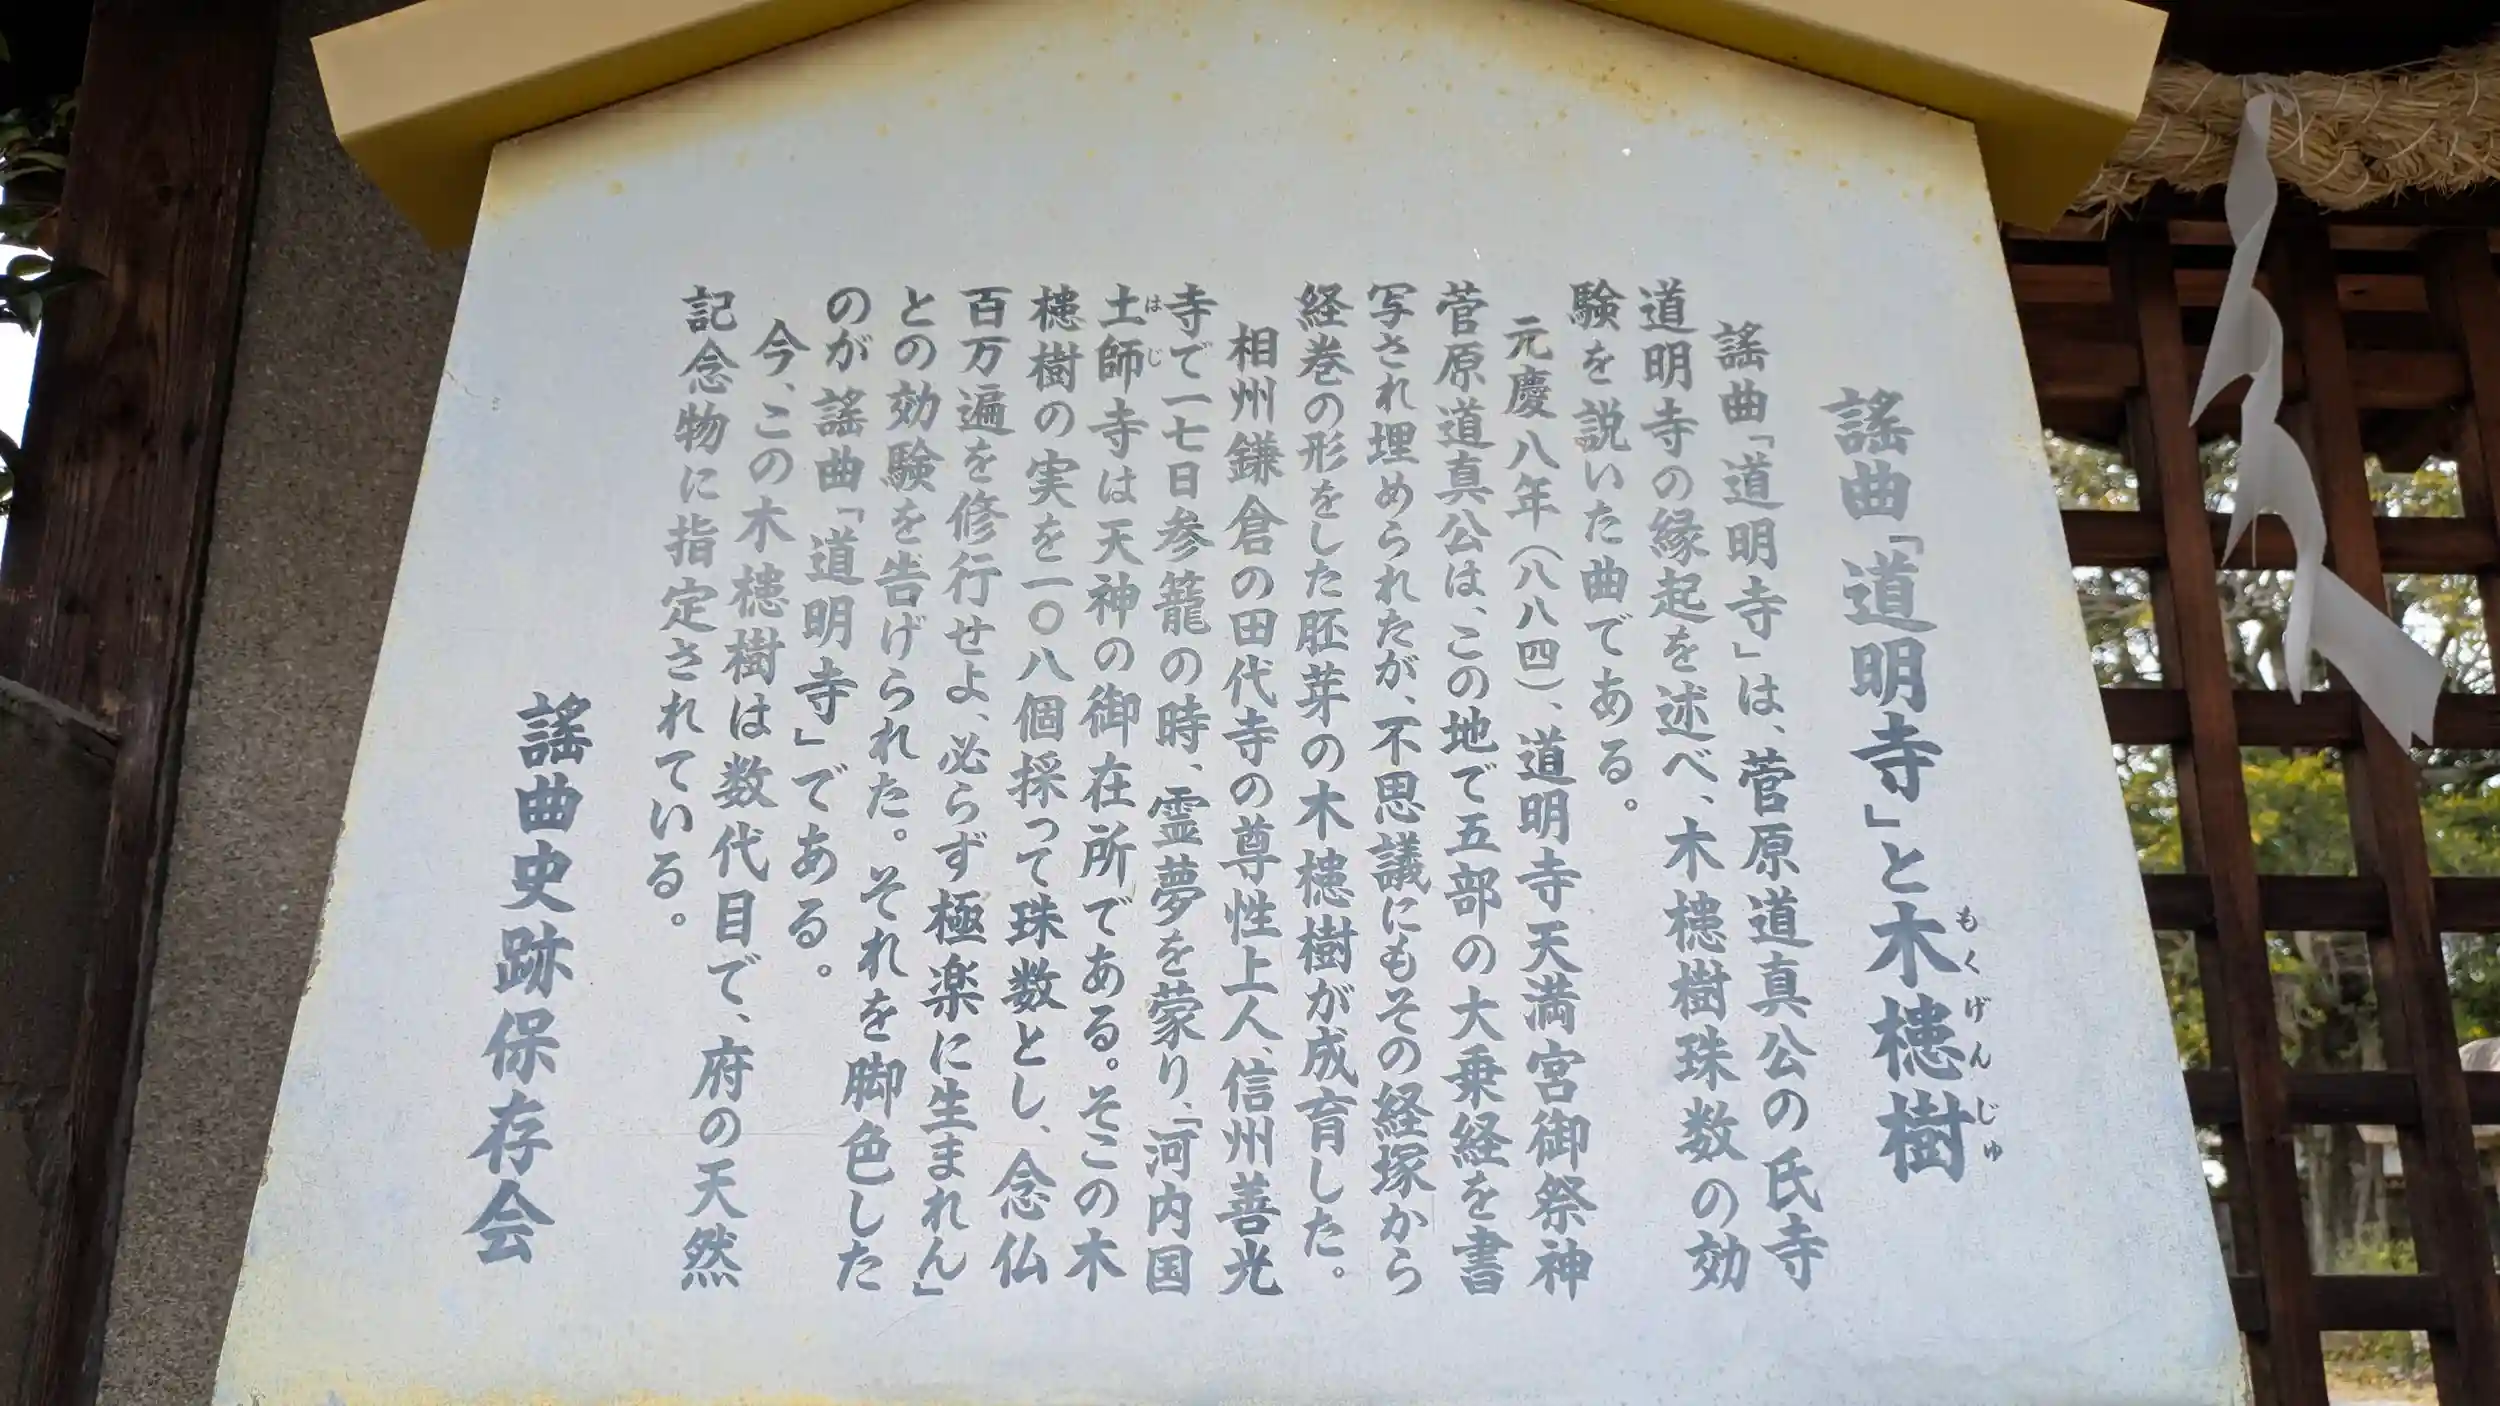 謡曲「道明寺」と木槵樹
もくげんじゅ
謡曲「道明寺」は、菅原道真公の氏寺
道明寺の縁起を述べ、木槵樹珠数の効
験を説いた曲である。
元慶八年(八八四)、道明寺天満宮御祭神
菅原道真公は、この地で五部の大乗経を書
写され埋められたが、不思議にもその経塚から
経巻の形をした胚芽の木槵樹が成育した。
相州鎌倉の田代寺の尊性上人、信州善光
寺で一七日参籠の時、霊夢を蒙り、「河内国
土師寺は天神の御在所である。そこの木
はじ
槵樹の実を一〇八個採って珠数とし、念仏
百万遍を修行せよ、必らず極楽に生まれん」
との効験を告げられた。それを脚色した
のが謡曲「道明寺」である。
今、この木槵樹は数代目で、府の天然
記念物に指定されている。
謡曲史跡保存会